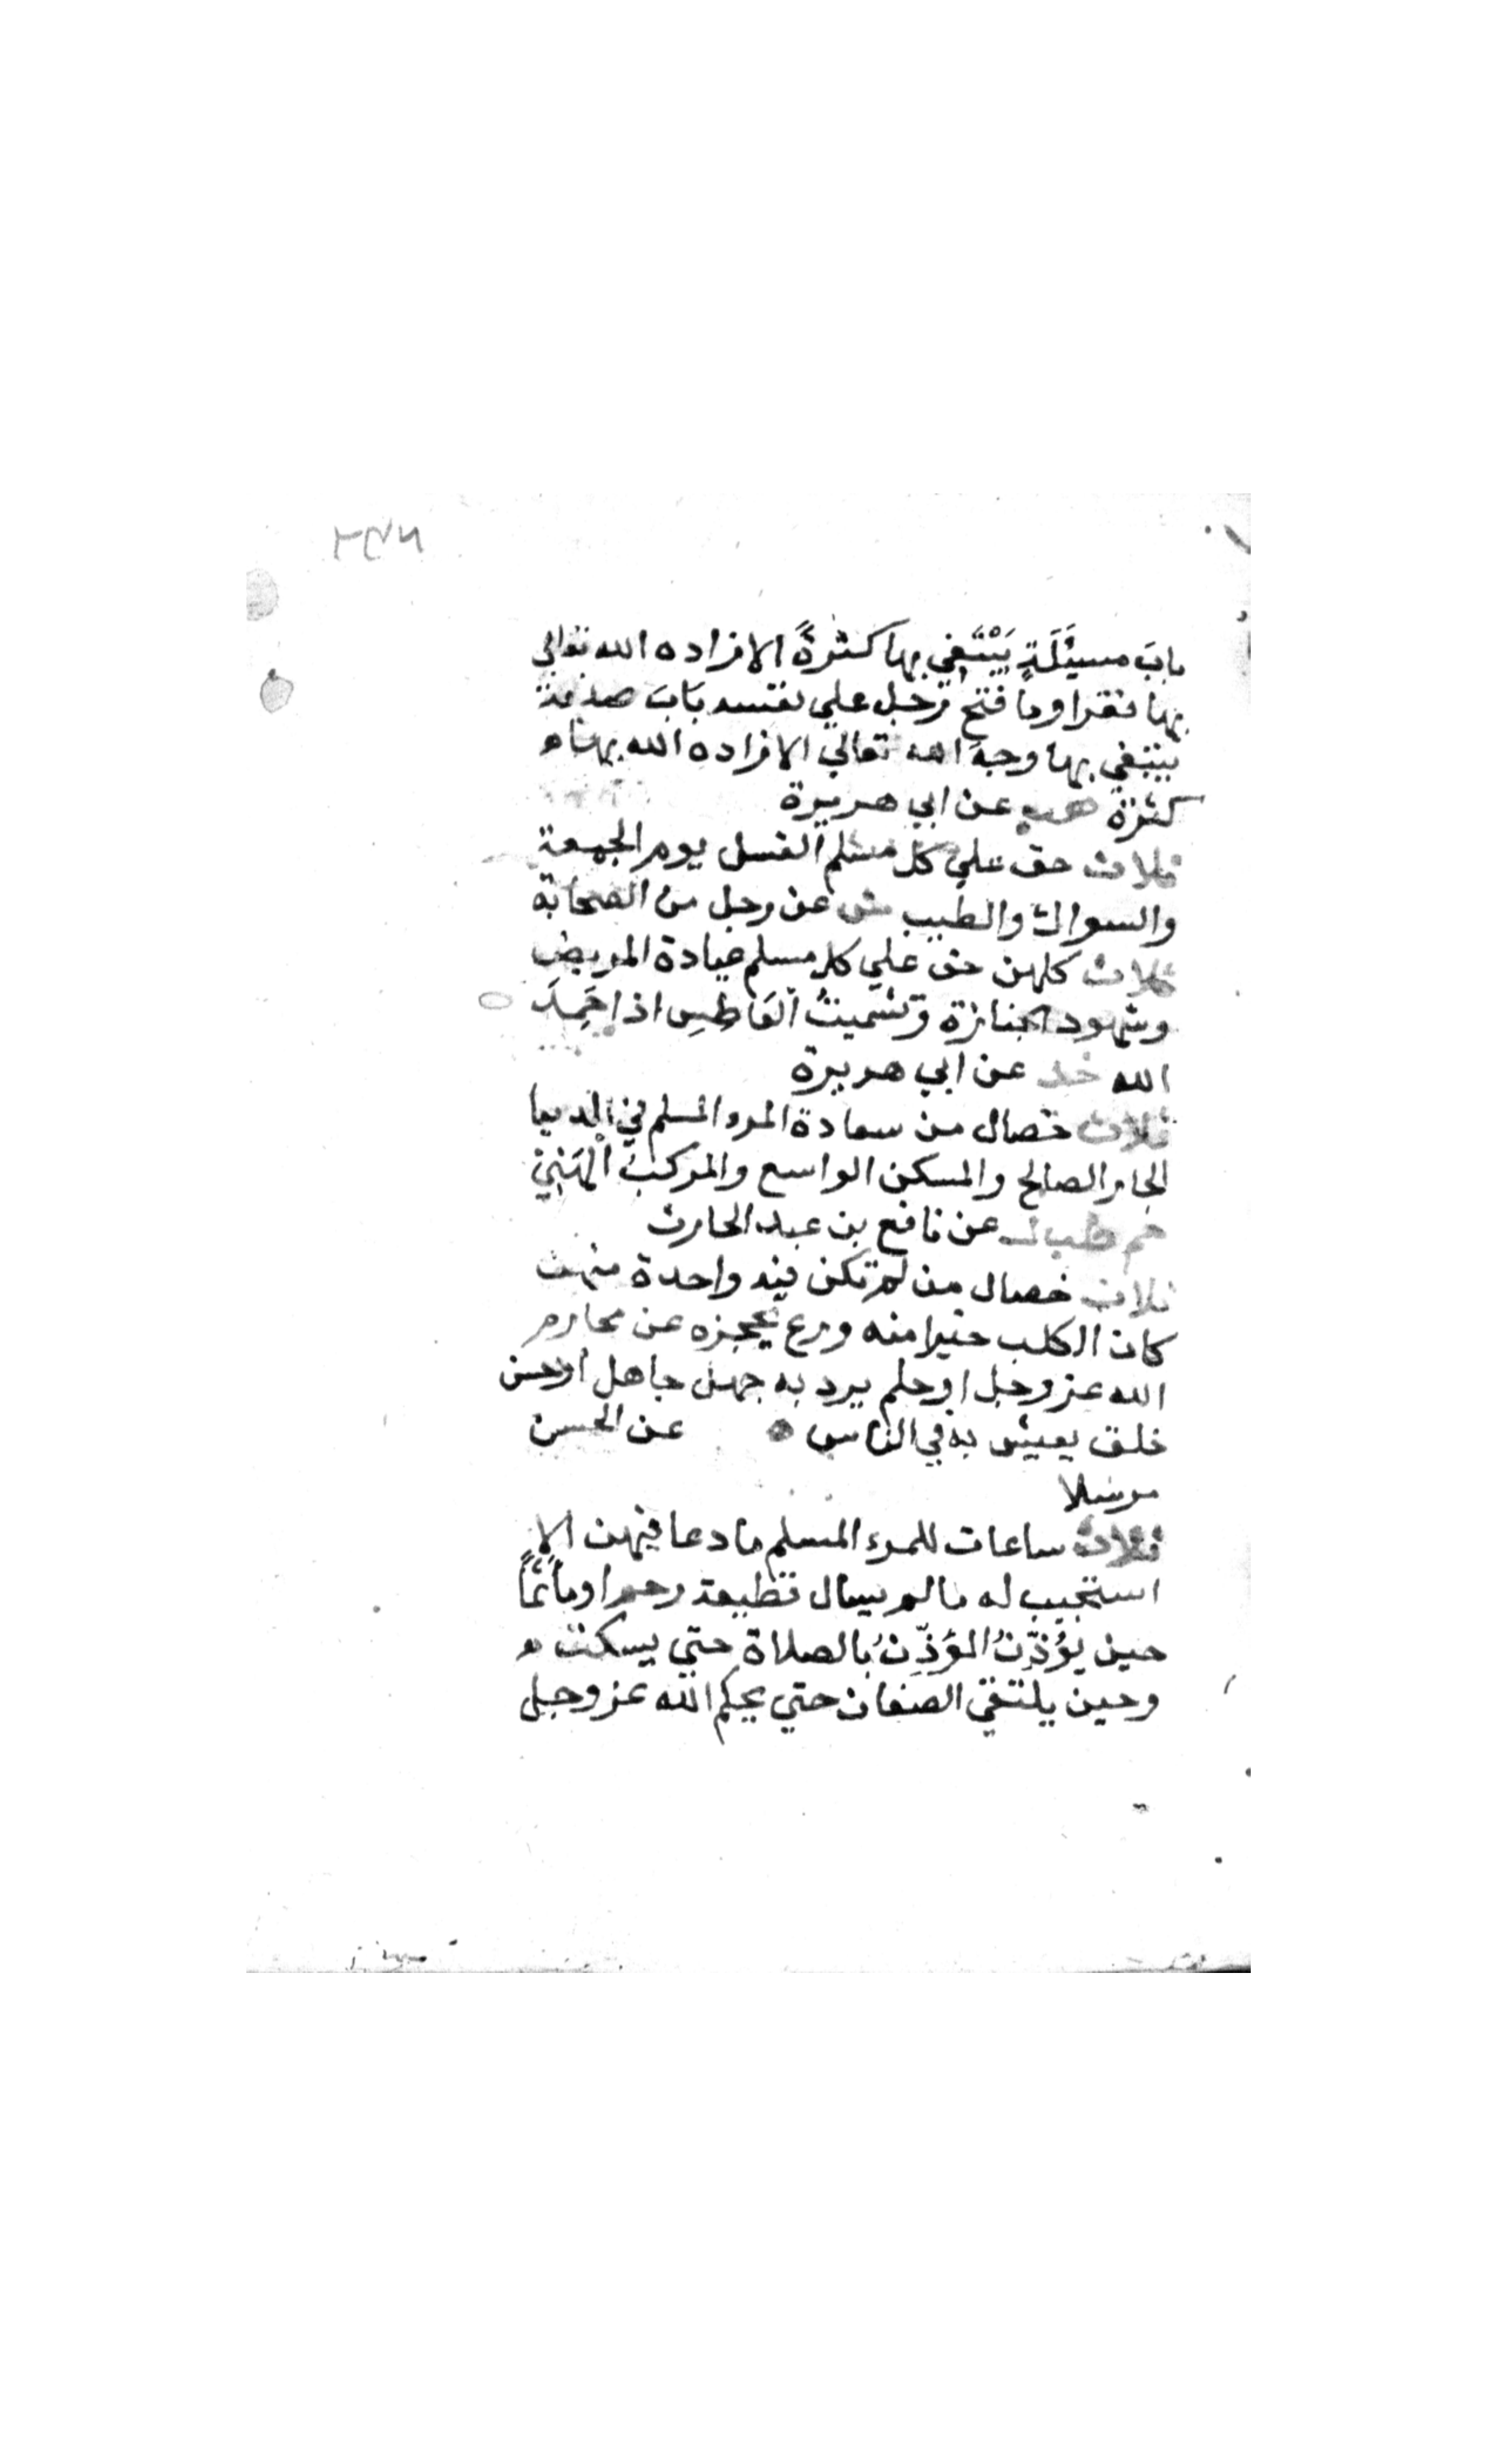 باب مسيئلة يبتغي بها كثرة الا زاده الله تعالي
بها فقرا وما فتح رجل علي نفسه باب صدقة
يبتغي بها وجه الله تعالي الا زاده الله بها
كثرة هب عن ابي هريرة
ثلاث حق علي كل مسلم الغسل يوم الجمعة
والسواك والطيب ش عن رجل من الصحابة
ثلاث كلهن حق علي كل مسلم عيادة المريض
وشهود الجنازة وتشميت العاطس اذا حمد
الله خد عن ابي هريرة
ثلاث خصال من سعادة المرء المسلم في الدنيا
الجار الصالح والمسكن الواسع والمركب الهني
حم طب ك عن نافع بن عبد الحارث
ثلاث خصال من لم تكن فيه واحدة منهن
كان الكلب خيرا منه ورع يحجزه عن محارم
الله عز وجل او حلم يرد به جهل جاهل او حسن
خلق يعيش به في الناس عن الحسن
مرسلا
ثلاث ساعات للمرء المسلم ما دعا فيهن الا
استجيب له ما لم يسال قطيعة رحم او مأثمًا
حين يؤذّنُ المؤذّنُ بالصلاة حتي يسكت
وحين يلتقي الصفان حتي يحكم الله عز وجل